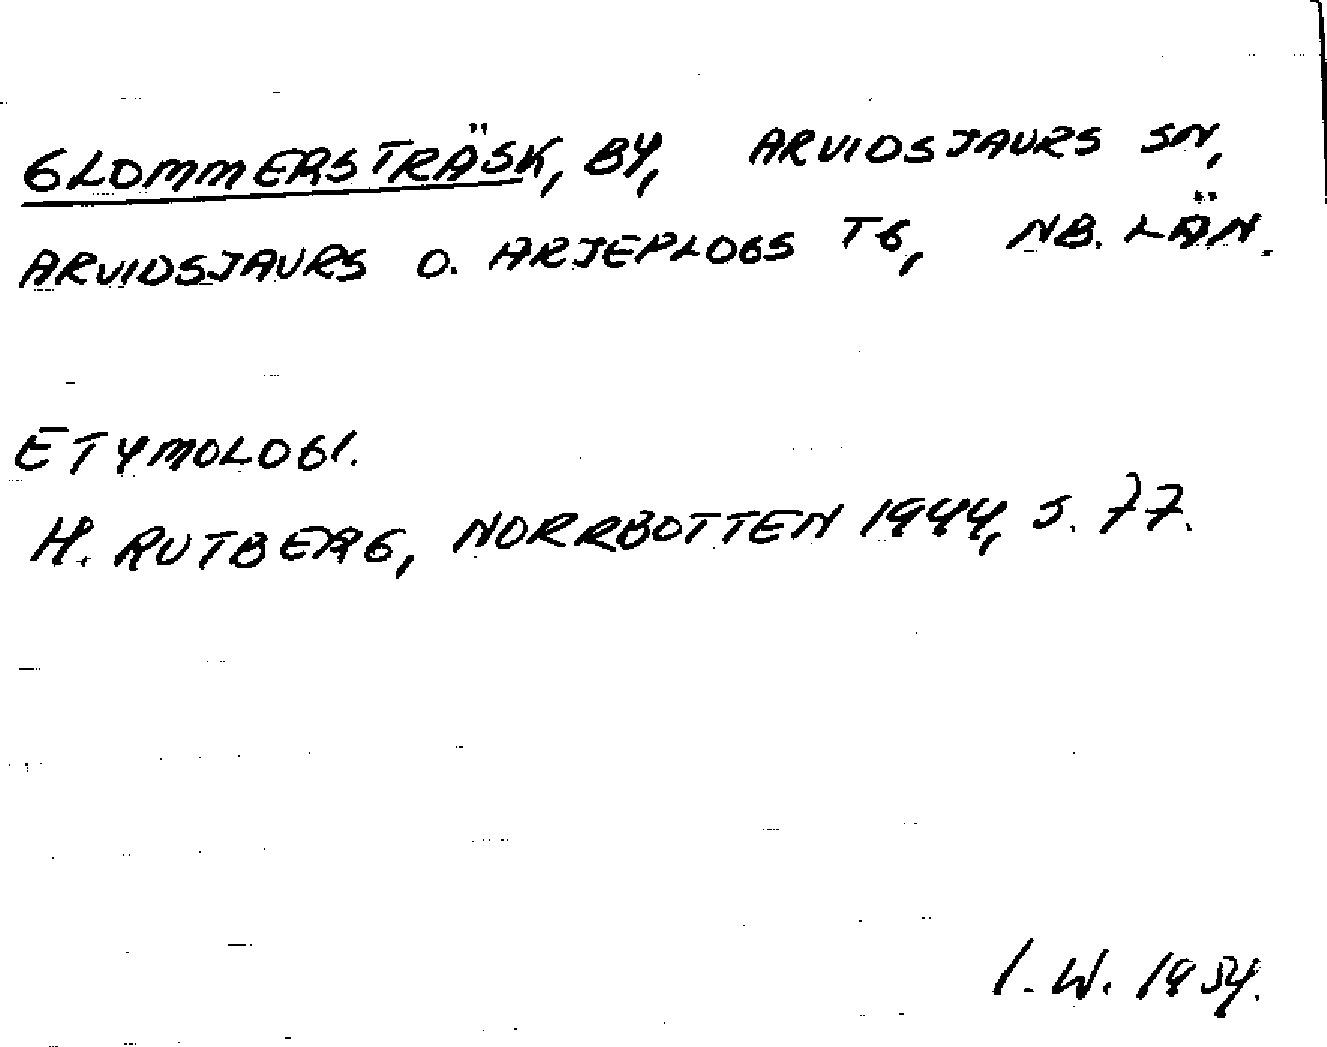 GLOMMERSTRÄSK, BY, ARVIDSJAURS SN,
ARVIDSJAURS O. ARJEPLOGS TG, NB. LÄN.
ETYMOLOGI.
H. RUTBERG, NORRBOTTEN 1944, S. 77.
I. W. 1954.